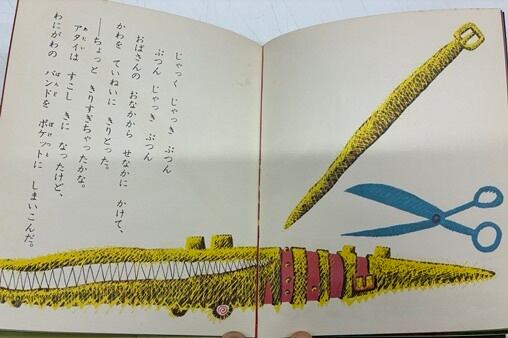 じゃっく じゃっき ぶつん
ぶつん じゃっき ぶつん
おばさんの おなかから せなかに かけて、
かわを ていねいに きりとった。
――ちょっと きりすぎちゃったかな。
アタイは すこし きに なったけど、
わにがわの バンドを ポケットに しまいこんだ。